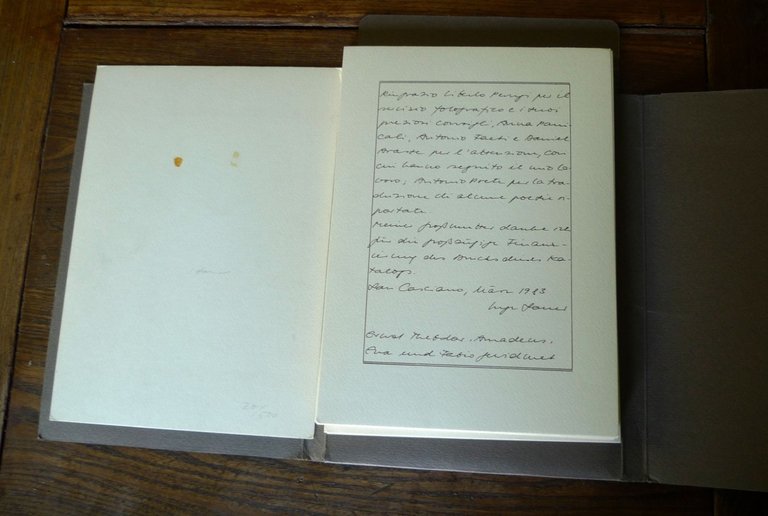 Ringrazio Liberto Perugi per il
servizio fotografico e i suoi
preziosi consigli, Anna Pani-
cali, Antonio Faeti e Daniel
per l'attenzione, con
cui hanno seguito il mio la-
voro, Antonio Prete per la tra-
duzione di alcune poesie ri-
portate.
Meiner Großmutter danke ich
für die großzügige Finanzi-
erung des Drucks dieses Ka-
talogs.
San Casciano, März 1983
Ernst Theodor, Amadeus,
Eva und Fabio gewidmet
/500